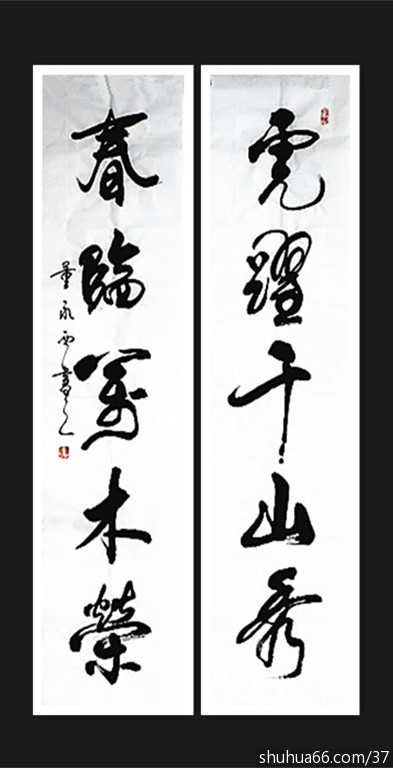 虎躍千山秀
春臨萬木榮
董永西書
shuhua66.com/37